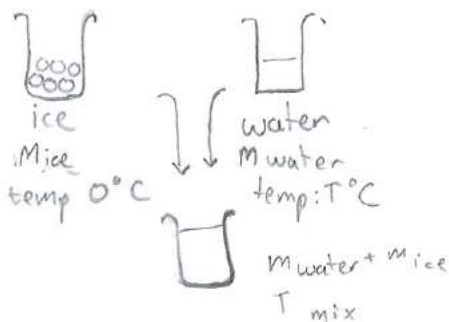 ice
Mice
temp 0°C
water
m water
temp: T°C
m water + m ice
T mix